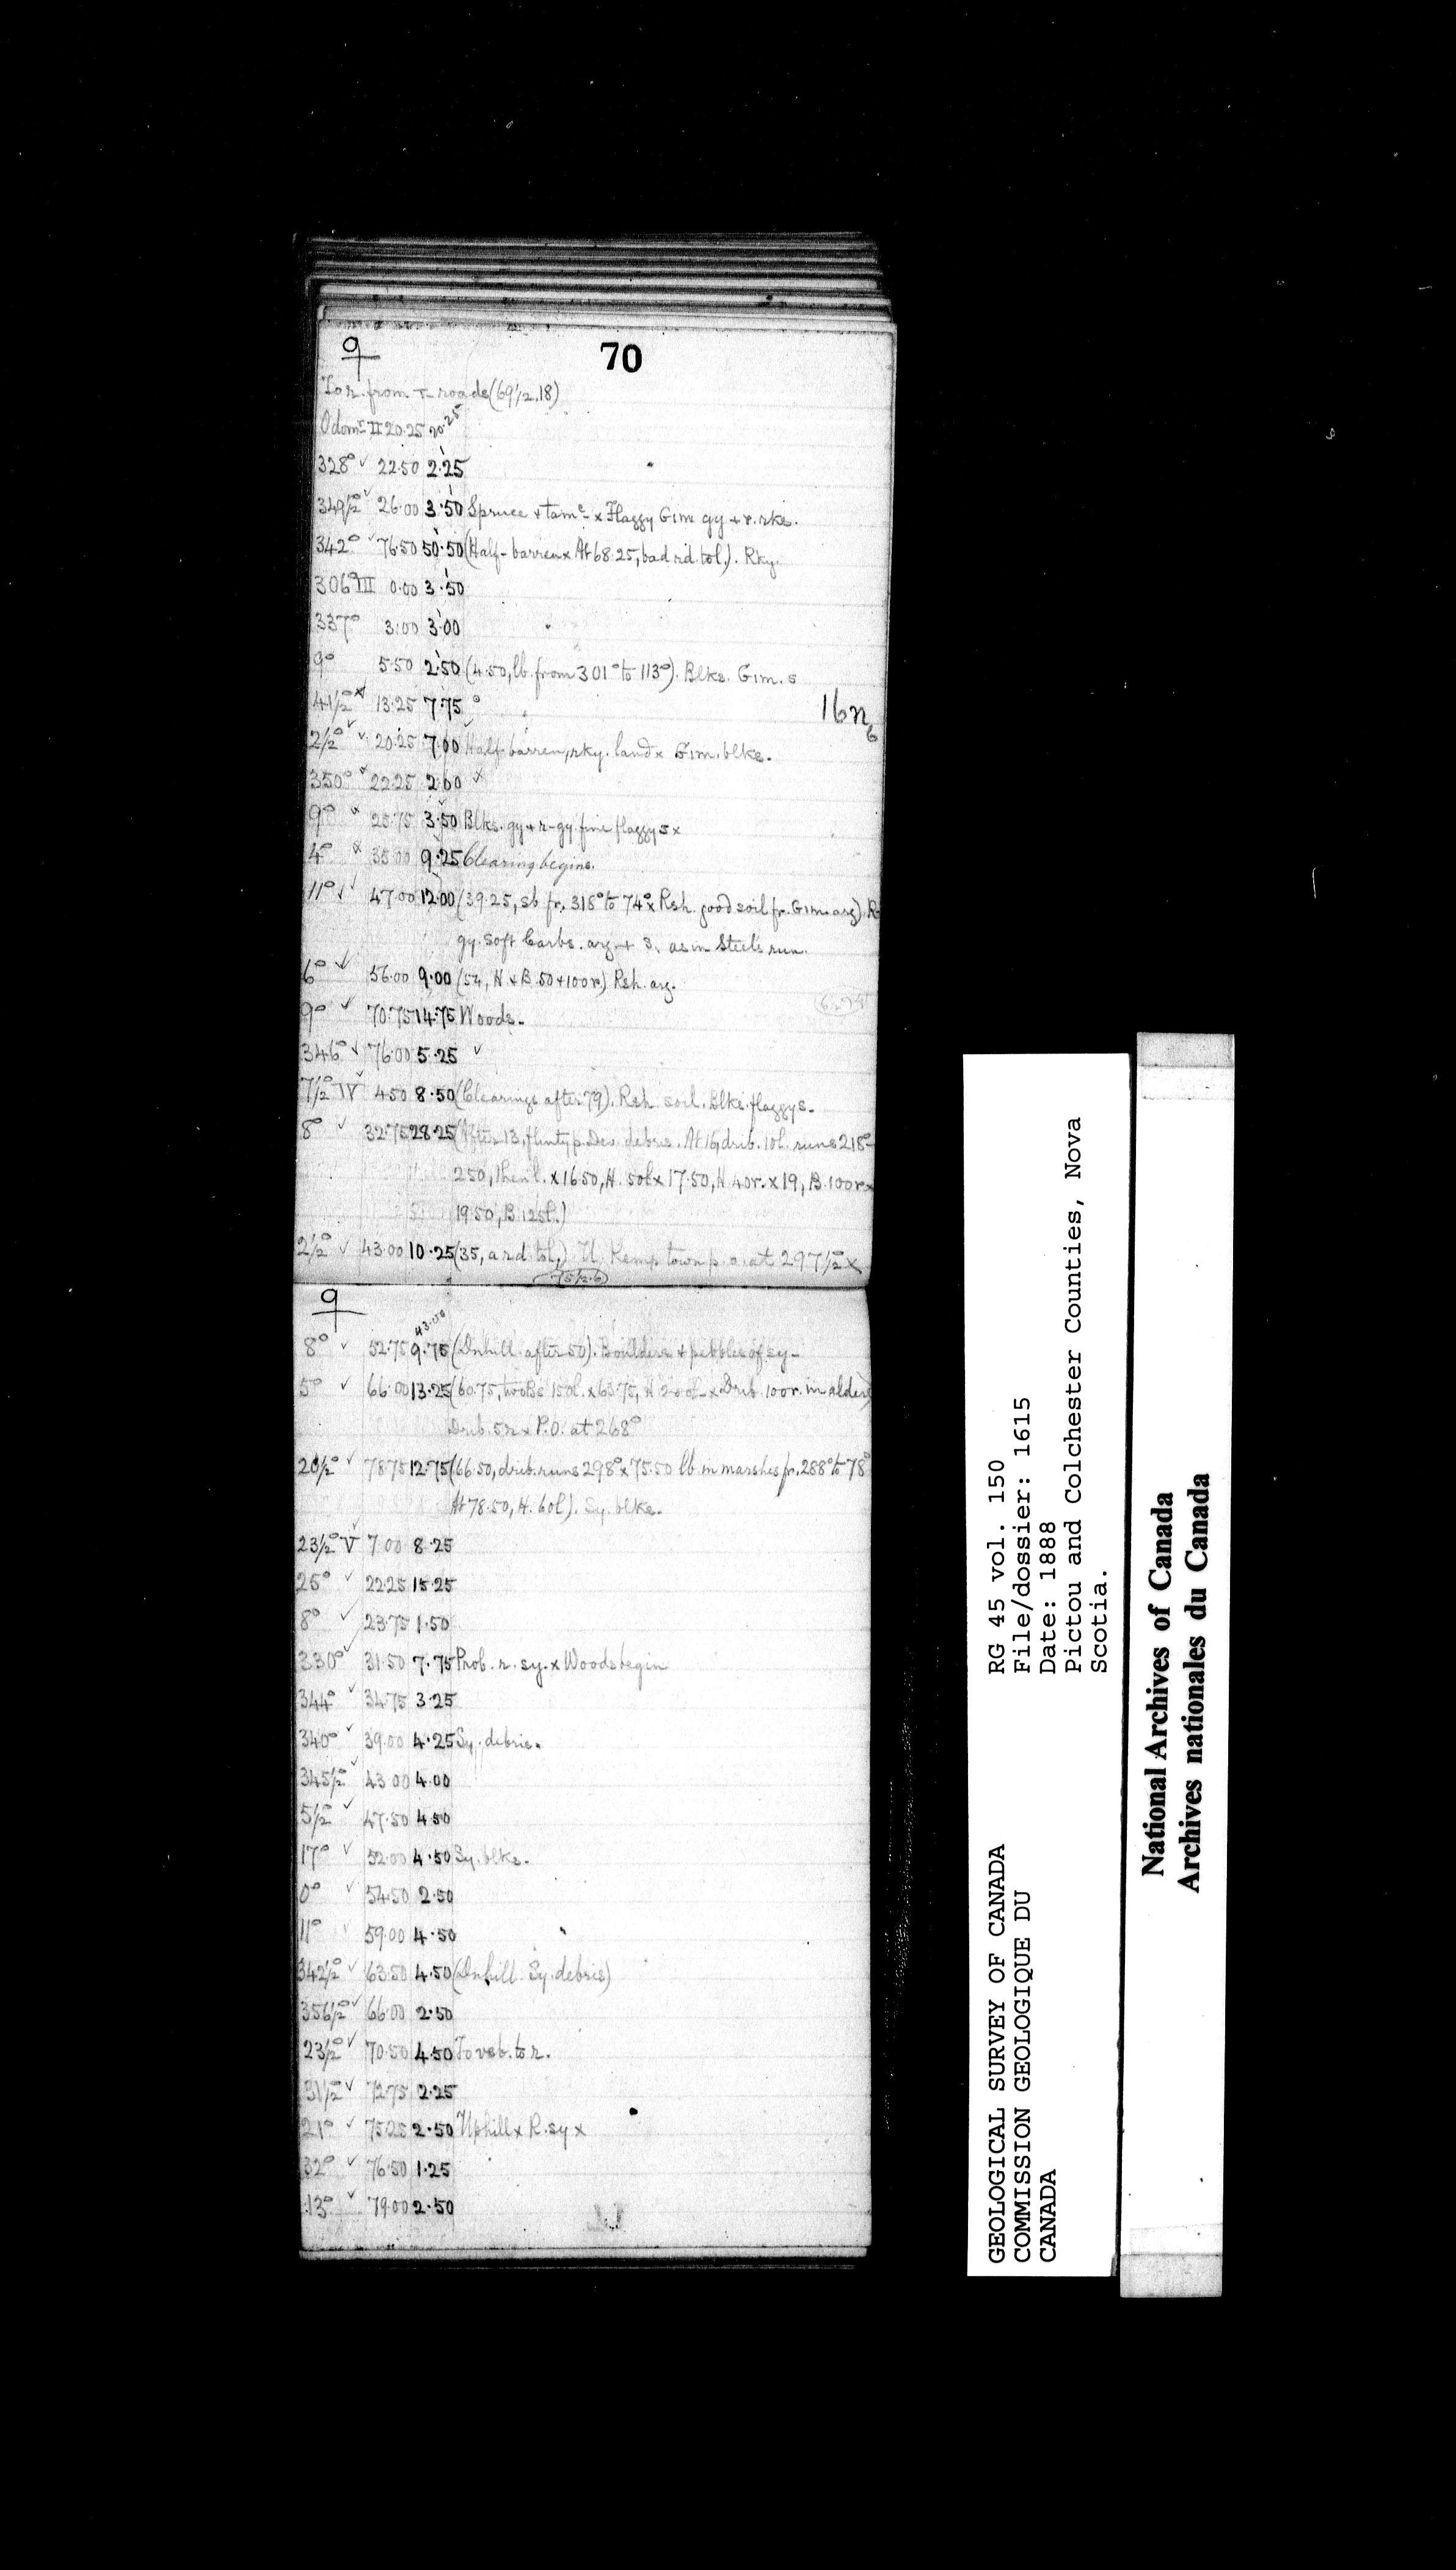 9
70
To r. from T roads (69 1/2.18)
Odomr II 20.25 20.25
328° ✓ 22.50 2.25
349 1/2° ✓ 26.00 3.50 Spruce + tame x Flaggy Gim. gy + r. rks.
342° ✓ 76.50 50.50 (Half-barren x At 68.25, bad rd. to l.). Rky.
306° III 0.00 3.50
337° 3.00 3.00
9° 5.50 2.50 (4.50, lb. from 301° to 113°). Blks. Gim. s
4 1/2° x 13.25 7.75
16n6
2 1/2° ✓ 20.25 7.00 Half-barren, rky. land x Gim. blks.
350° x 22.25 2.00 ✓
9° x 25.75 3.50 Blks. gy + r-gy fine flaggy s x
4° x 35.00 9.25 Clearing begins.
11° ✓ 47.00 12.00 (39.25, sb. fr. 318° to 74° x Rsh. good soil fr. Gim. arg). R
gy. soft Carbs. arg. + s. as in Steels run.
6° ✓ 56.00 9.00 (54, H + B. 50 + 100 r.) Rsh. arg.
9° ✓ 70.75 14.75 Woods.
346° ✓ 76.00 5.25 ✓
7 1/2° IV 4.50 8.50 (Clearings after 79). Rsh. soil. Blks. flaggy s.
8° ✓ 32.75 28.25 (After 13, flinty p. Dev. debris. At 16, drib. 10l. runs 218°-
250, then l. x 16.50, H. 50l x 17.50, H 40r. x 19, B. 100r x
19.50, B. 125l.)
2 1/2° ✓ 43.00 10.25 (35, a rd. to l.) U. Kemptown p. o. at 297 1/2° x
(75 1/2.6)
9
43.00
8° ✓ 52.75 9.75 (Dnhill after 50). Boulders + pebbles of sy-
5° ✓ 66.00 13.25 (60.75, two Bs 150l. x 63.75, H 200l. x Drib. 100r. in alders)
Drib. 5r x P.O. at 268°
20 1/2° ✓ 78.75 12.75 (66.50, drib. runs 298° x 75.50 lb in marshes fr. 288° to 78°
At 78.50, H. 60l). Sy. blks.
23 1/2° V 7.00 8.25
26° ✓ 22.25 15.25
8° ✓ 23.75 1.50
330° ✓ 31.50 7.75 Prob. r. sy. x Woods begin
344° ✓ 34.75 3.25
340° ✓ 39.00 4.25 Sy. debris.
345 1/2° ✓ 43.00 4.00
5 1/2° ✓ 47.50 4.50
17° ✓ 52.00 4.50 Sy. blks.
0° ✓ 54.50 2.50
11° ✓ 59.00 4.50
342 1/2° ✓ 63.50 4.50 (Dnhill. Sy. debris)
356 1/2° ✓ 66.00 2.50
23 1/2° ✓ 70.50 4.50 To vsb. to r.
31 1/2° ✓ 72.75 2.25
21° ✓ 75.25 2.50 Uphill x R. sy x
32° ✓ 76.50 1.25
13° ✓ 79.00 2.50
GEOLOGICAL SURVEY OF CANADA
COMMISSION GEOLOGIQUE DU
CANADA
RG 45 vol. 150
File/dossier: 1615
Date: 1888
Pictou and Colchester Counties, Nova
Scotia.
National Archives of Canada
Archives nationales du Canada